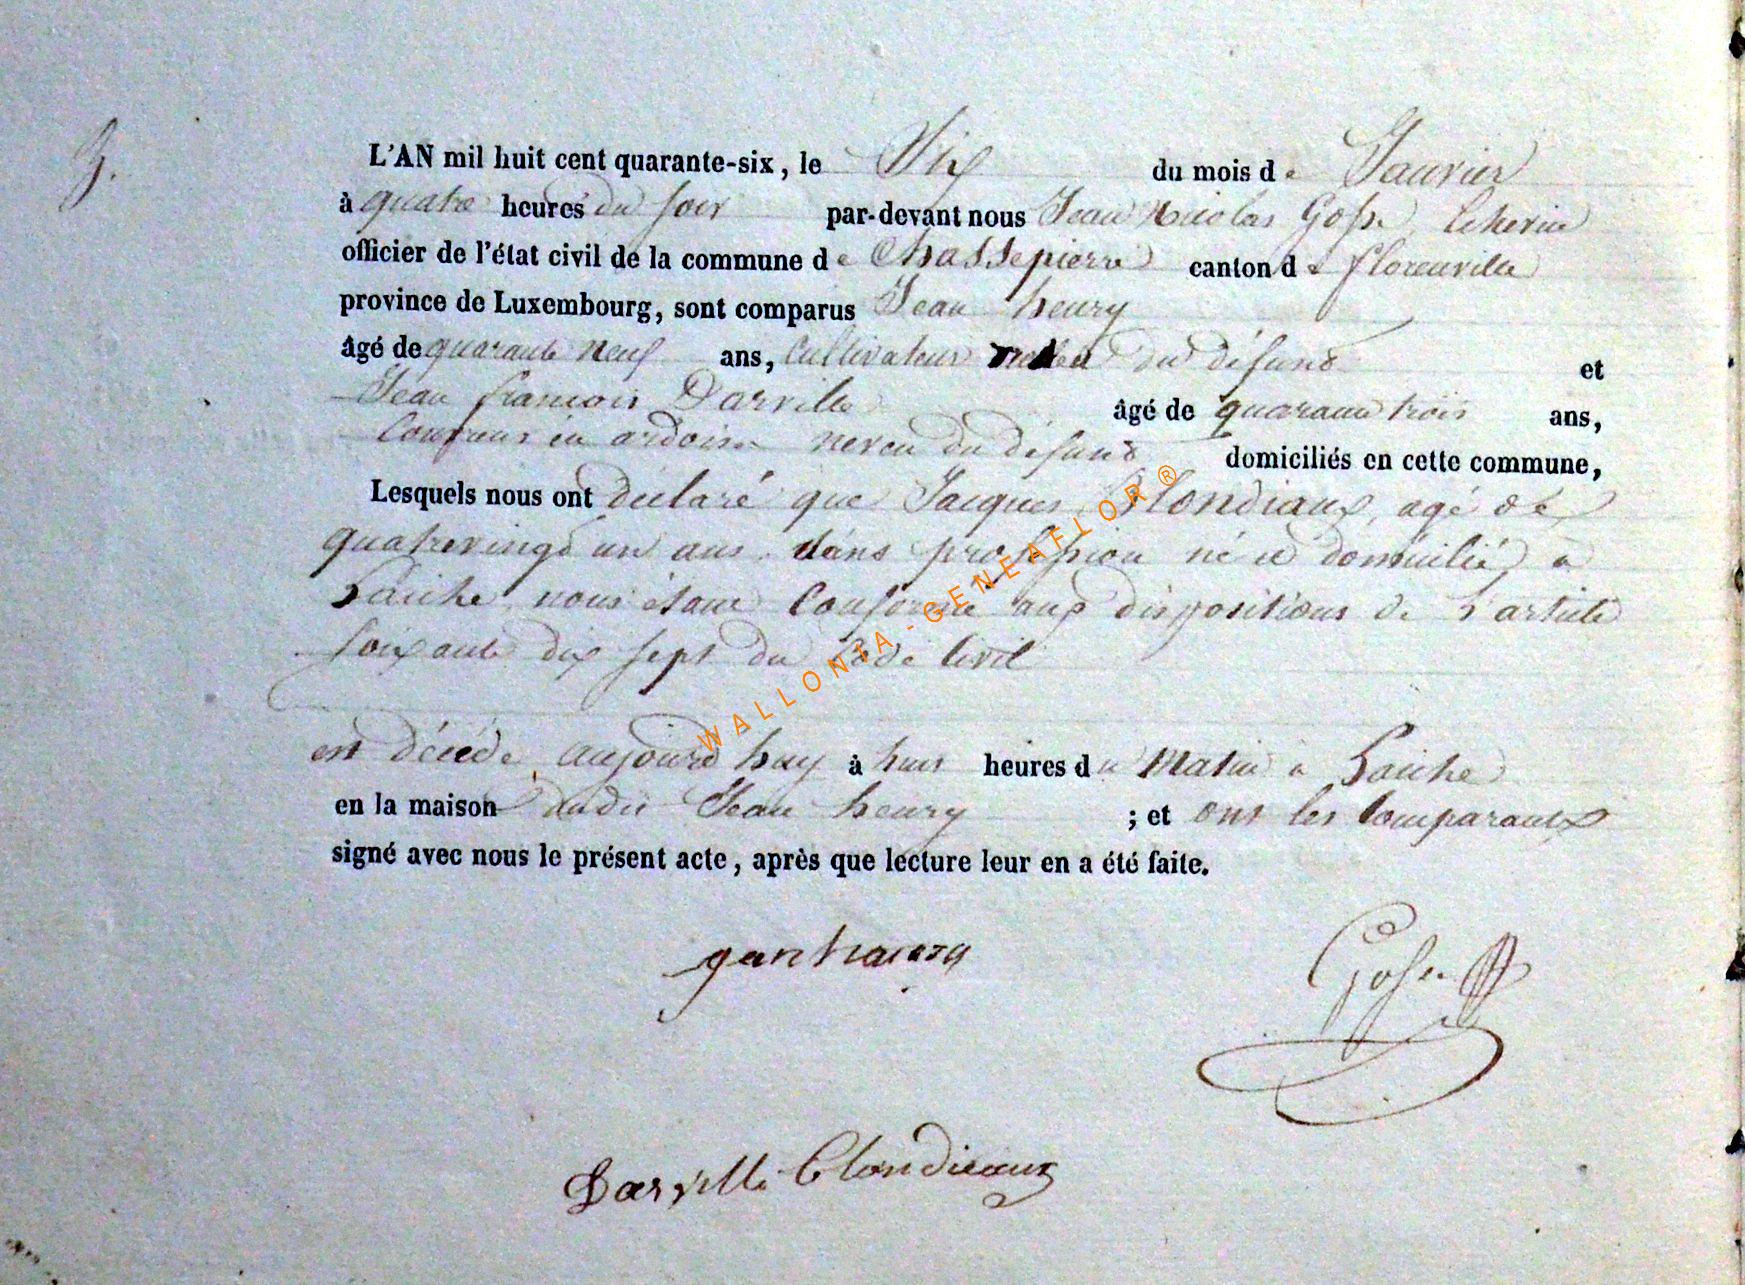 3.
L'AN mil huit cent quarante-six, le Six du mois de Janvier
à quatre heures du soir par-devant nous Jean Nicolas Gosse, Echevin
officier de l'état civil de la commune de Chassepierre canton de florenville
province de Luxembourg, sont comparus Jean henry
âgé de quarante neuf ans, Cultivateur neveu du défunt et
Jean francois Darville âgé de quarante trois ans,
Couvreur en ardoise neveu du défunt domiciliés en cette commune,
Lesquels nous ont déclaré que Jacques Clondiaux, agé de
quatrevingt un ans, sans profession né et domicilié à
Laiche, nous étant Conformé aux dispositions de L'article
soixante dix sept du Code Civil
est décédé aujourd huy à huit heures du Matin à Laiche
en la maison dudit Jean henry ; et ont les Comparants
signé avec nous le présent acte, après que lecture leur en a été faite.
Gosse
Darville Clondieaux
WALLONIA-GENEAFLOR ®